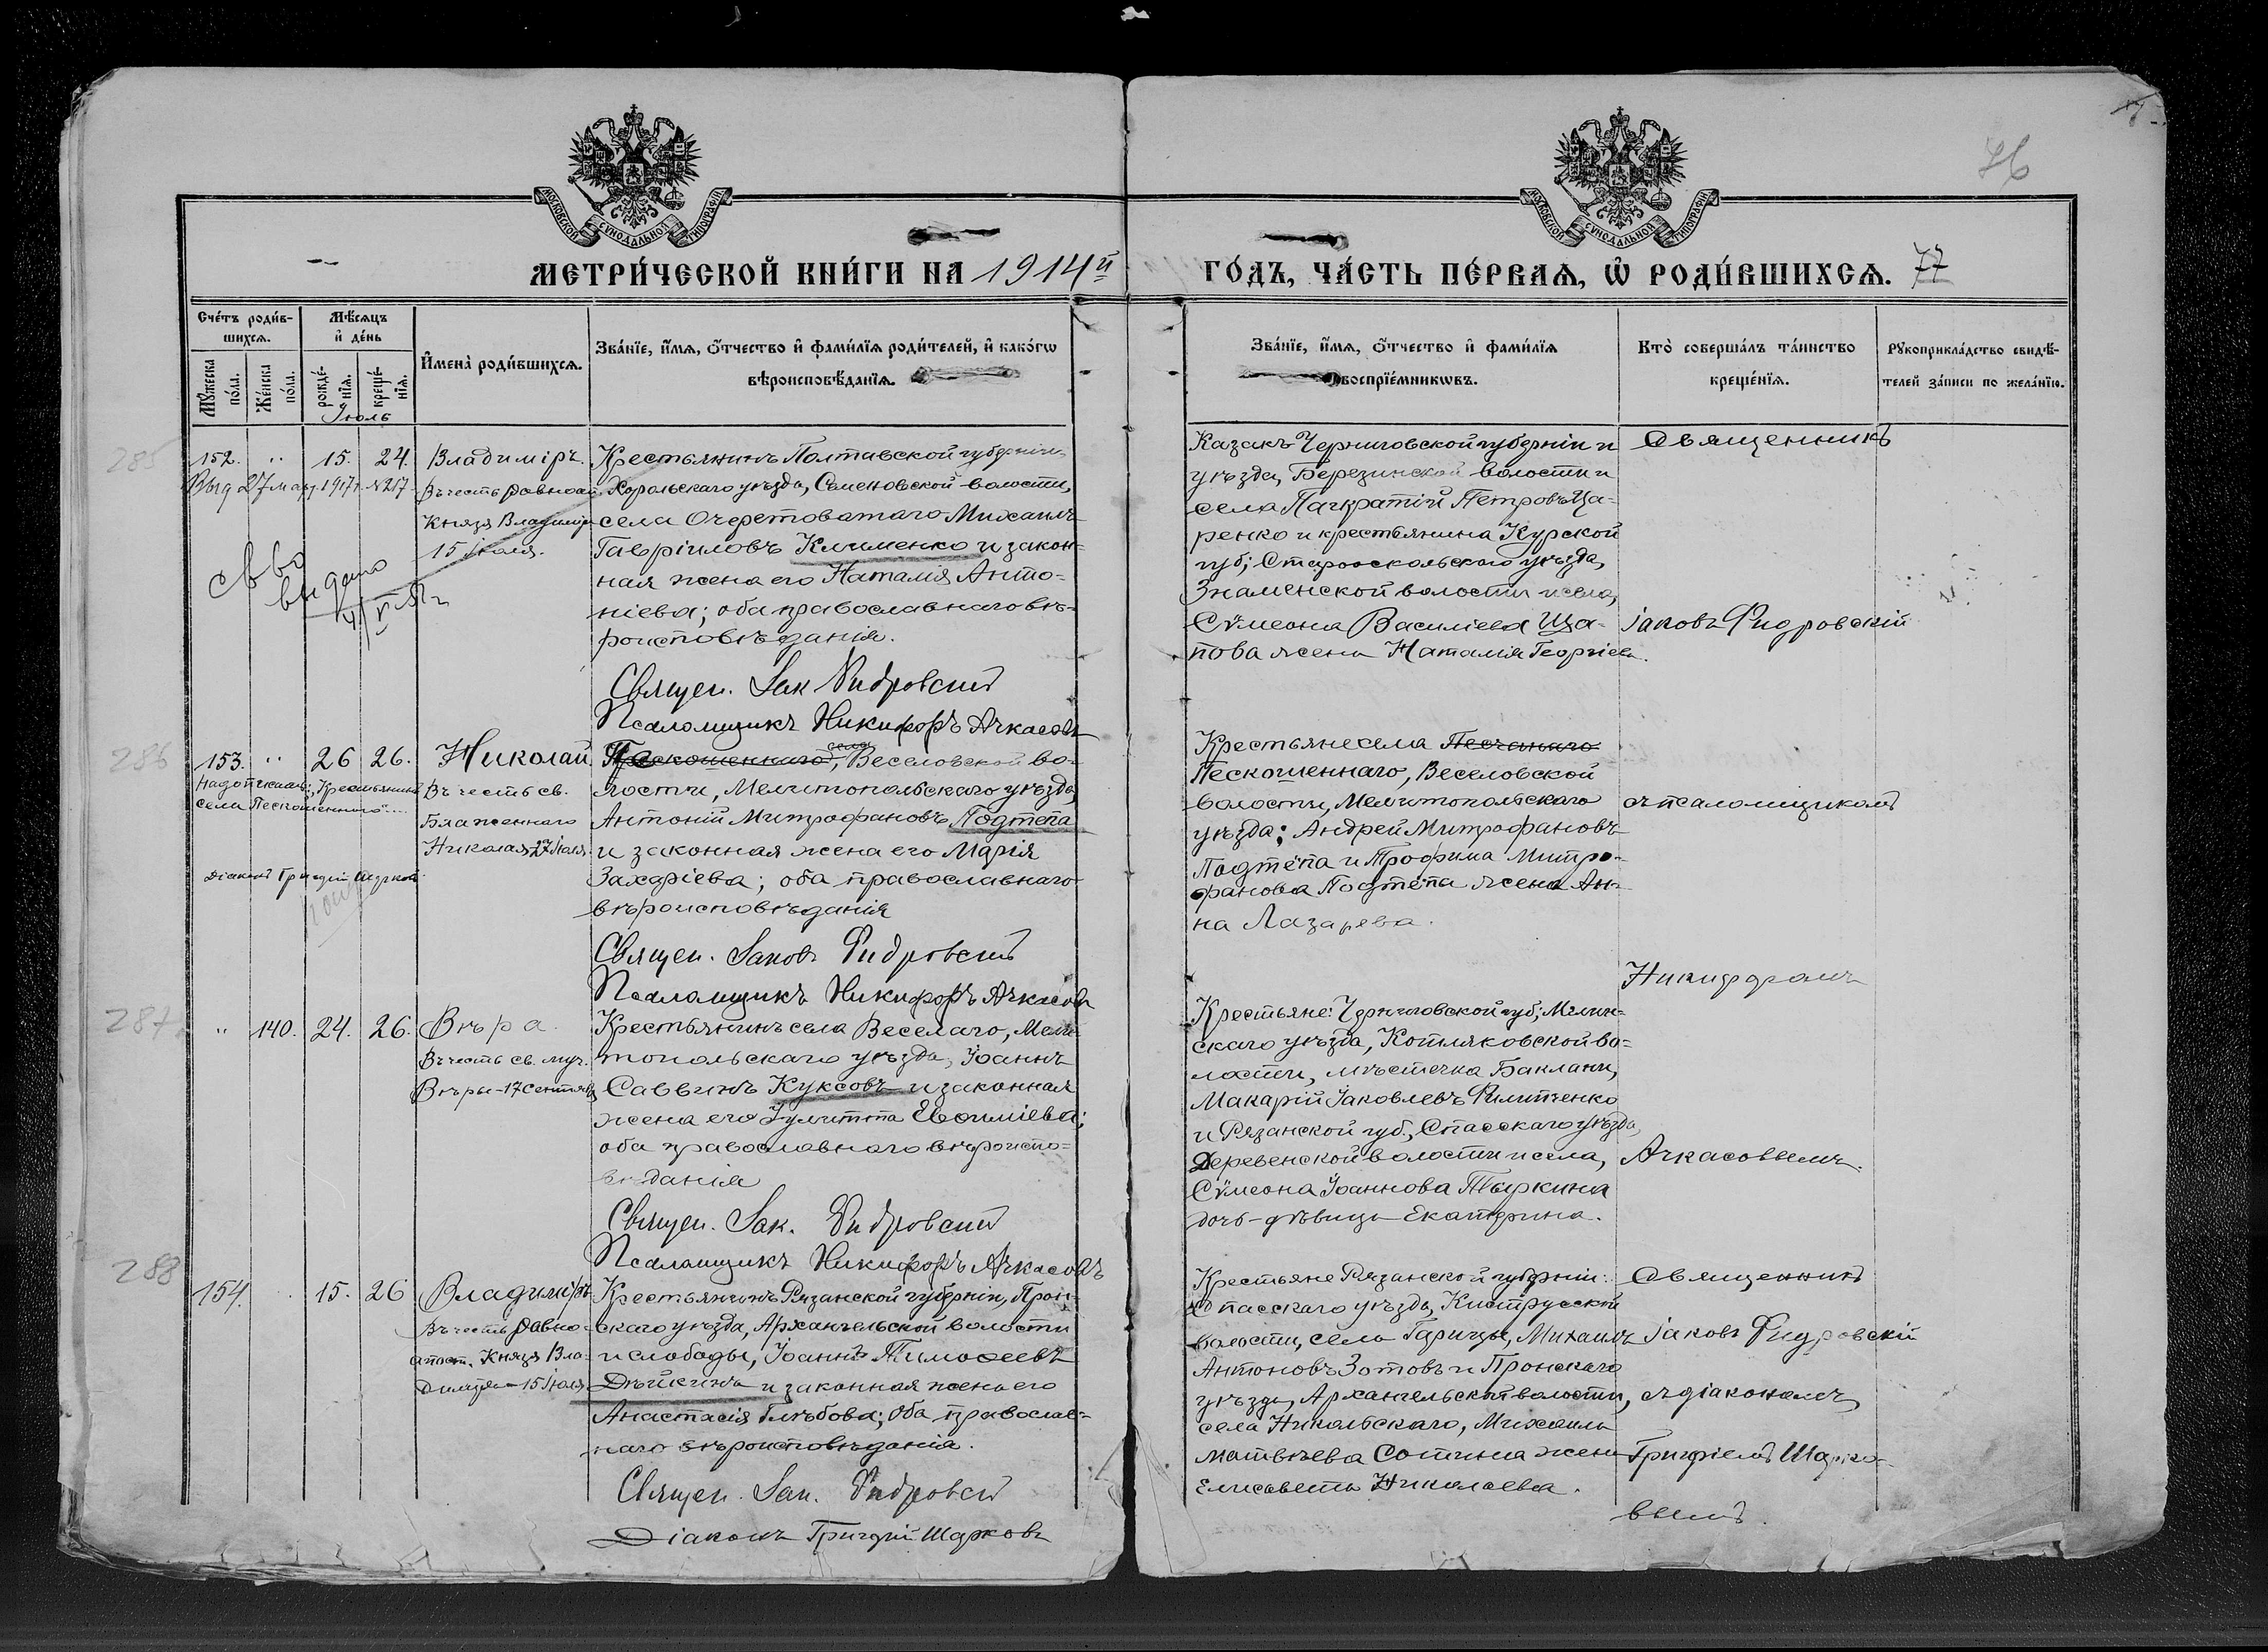 76
МОСКОВСКОЙ СУНОДАЛЬНОЙ ТИПОГРАФІИ
МОСКОВСКОЙ СУНОДАЛЬНОЙ ТИПОГРАФІИ
МЕТРИ́ЧЕСКОЙ КНИ́ГИ НА 1914й
ГО́ДЪ, ЧА́СТЬ ПЕ́РВАѦ, Ѡ РОДИ́ВШИХСѦ. 77
Сче́тъ роди́в-
шихсѧ.
Мꙋжеска
по́ла.
Же́нска
по́ла.
Мѣ́сѧцъ
и де́нь
рожде́-
нїѧ.
креще́-
нїѧ.
Іюль
Имена̀ роди́вшихсѧ.
Зва́нїе, и́мѧ, о́тчество и фами́лїѧ роди́телей, и како́гѡ
вѣроисповѣ́данїѧ.
Зва́нїе, и́мѧ, о́тчество и фами́лїѧ
воспрїе́мникѡвъ.
Кто̀ соверша́лъ та́инство
креще́нїѧ.
Рꙋкоприкла́дство свидѣ́-
телей за́писи по жела́нїю.
285
152. " 15. 24. Владиміръ.
Выд 27 мар. 1917 г. №217
Въ честь равноап.
Князя Владимір
15 Іюля.
св во
выдано
Крестьянинъ Полтавской губерніи
Хорольскаго уѣзда, Семеновской волости,
села Очеретоватаго Михаилъ
Гавріиловъ Клименко и закон-
ная жена его Наталія Анто-
ніева; оба православнаго вѣ-
роисповѣданія.
Священ. Іак Фидровскій
Псаломщикъ Никифоръ Ачкасовъ
Казакъ Черниговской губерніи и
уѣзда, Березинской волости и
села Панкратій Петровъ Ца-
ренко и крестьянина Курской
губ; Старооскольскаго уѣзда,
Знаменской волости и села,
Сѵмеона Василіева Ща-
пова жена Наталія Георгіев.
Священникъ
Іаковъ Фидровскій
286
153. " 26 26. Николай
Надо писать: "Крестьянинъ
села Пескошеннаго"...
Діаконъ Григорій Шарковъ
Въ честь св.
Блаженнаго
Николая 27 Іюля.
Пескошеннаго, села Веселовской во-
лости, Мелитопольскаго уѣзда,
Антоній Митрофановъ Подтепа
и законная жена его Марія
Захаріева; оба православнаго
вѣроисповѣданія
Священ. Іаковъ Фидровскій
Псаломщикъ Никифоръ Ачкасовъ
Крестьяне села Песчанаго
Пескошеннаго, Веселовской
волости, Мелитопольскаго
уѣзда; Андрей Митрофановъ
Подтепа и Трофима Митро-
фанова Подтепа жена Ан-
на Лазарева.
съ псаломщикомъ
Никифоромъ
Ачкасовымъ.
287
" 140. 24. 26. Вѣра.
Въ честь св. муч.
Вѣры - 17 Сентября
Крестьянинъ села Веселаго, Мели-
топольскаго уѣзда, Іоаннъ
Саввинъ Куксовъ и законная
жена его Іулитта Евѳиміева;
оба православнаго вѣроиспо-
вѣданія
Священ. Іак. Фидровскій
Псаломщикъ Никифоръ Ачкасовъ
Крестьяне: Черниговской губ; Мглин-
скаго уѣзда, Котляковской во-
лости, мѣстечка Баклани,
Макарій Іаковлевъ Филипченко
и Рязанской губ., Спасскаго уѣзда,
Деревенской волости и села,
Сѵмеона Іоаннова Тыркина
дочь-дѣвица Екатерина.
288
154. 15. 26 Владиміръ
Въ честь равно-
апост. Князя Вла-
диміра - 15 Іюля
Крестьянинъ Рязанской губерніи, Прон-
скаго уѣзда, Архангельской волости
и слободы, Іоаннъ Тимоѳеевъ
Дѣйкинъ и законная жена его
Анастасія Глѣбова; оба православ-
наго вѣроисповѣданія.
Священ. Іак. Фидровскій
Діаконъ Григорій Шарковъ
Крестьяне Рязанской губерніи:
Спасскаго уѣзда, Киструсской
волости, села Гарицы, Михаилъ
Антоновъ Зотовъ и Пронскаго
уѣзда, Архангельской волости,
села Никольскаго, Михаила
Матвѣева Сотина жена
Елисавета Николаева.
Священникъ
Іаковъ Фидровскій
съ діакономъ
Григоріемъ Шарко-
вымъ.